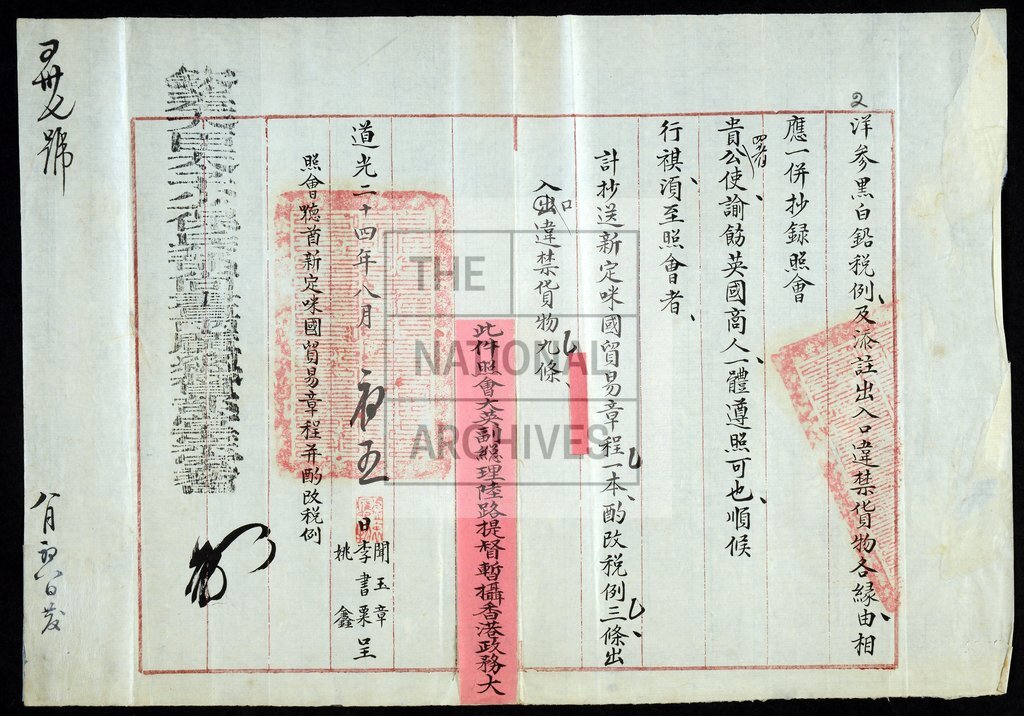 2
洋參黑白鉛稅例及添註出入口違禁貨物各縁由相
應一併抄録照會
貴公使諭飭英國商人一體遵照可也順候
行祺須至照會者
計抄送新定咪國貿易章程一本酌改稅例三條出
入口違禁貨物九條
此件照會大英副總理陸路提督暫攝香港政務大
道光二十四年八月初五日
聞玉章
李書粟呈
姚鑫
照會聴酋新定咪國貿易章程并酌改稅例
八月初八日發
號
THE
NATIONAL
ARCHIVES